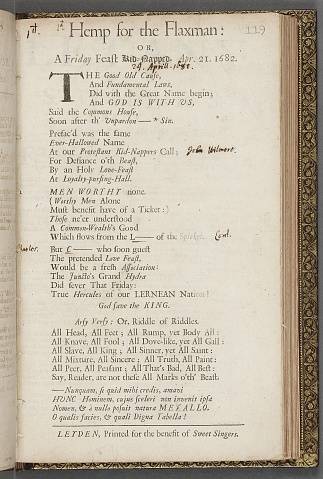 Hemp for the Flaxman:
119
OR,
A Friday Feast Kid-Napped. Apr. 21. 1682.
THE Good Old Cause,
And Fundamental Laws,
Did with the Great Name begin;
And GOD IS WITH US,
Said the Commons House,
Soon after th' Unpardon —— * Sin.
Prefac'd was the same
Ever-Hallowed Name
At our Protestant Kid-Nappers Call; John Wilmore.
For Defiance o'th Beast,
By an Holy Love-Feast
At Loyalty-pursing-Hall.
MEN WORTHY none.
(Worthy Men Alone
Must benefit have of a Ticket:)
Those ne'er understood
A Common-Wealth's Good
Which flows from the L—— of the
But —— who soon guest
The pretended Love Feast,
Would be a fresh Association:
The Juncto's Grand Hydra
Did fever That Friday:
True Hercules of our LERNEAN Nation!
God save the KING.
Arsy Versy: Or, Riddle of Riddles.
All Head, All Feet; All Rump, yet Body All:
All Knave, All Fool; All Dove-like, yet All Gall:
All Slave, All King; All Sinner, yet All Saint:
All Mixture, All Sincere; All Truth, All Paint:
All Peer, All Peasant; All That's Bad, All Best:
Say, Reader, are not these All Marks o'th' Beast.
—Nunquam, si quid mihi credis, amavi
HUNC Hominem, cujus sceleri non invenit ipsa
Nomen, & à nullo posuit natura METALLO.
O qualis facies, & quali Digna Tabella!
LEYDEN, Printed for the benefit of Sweet Singers.